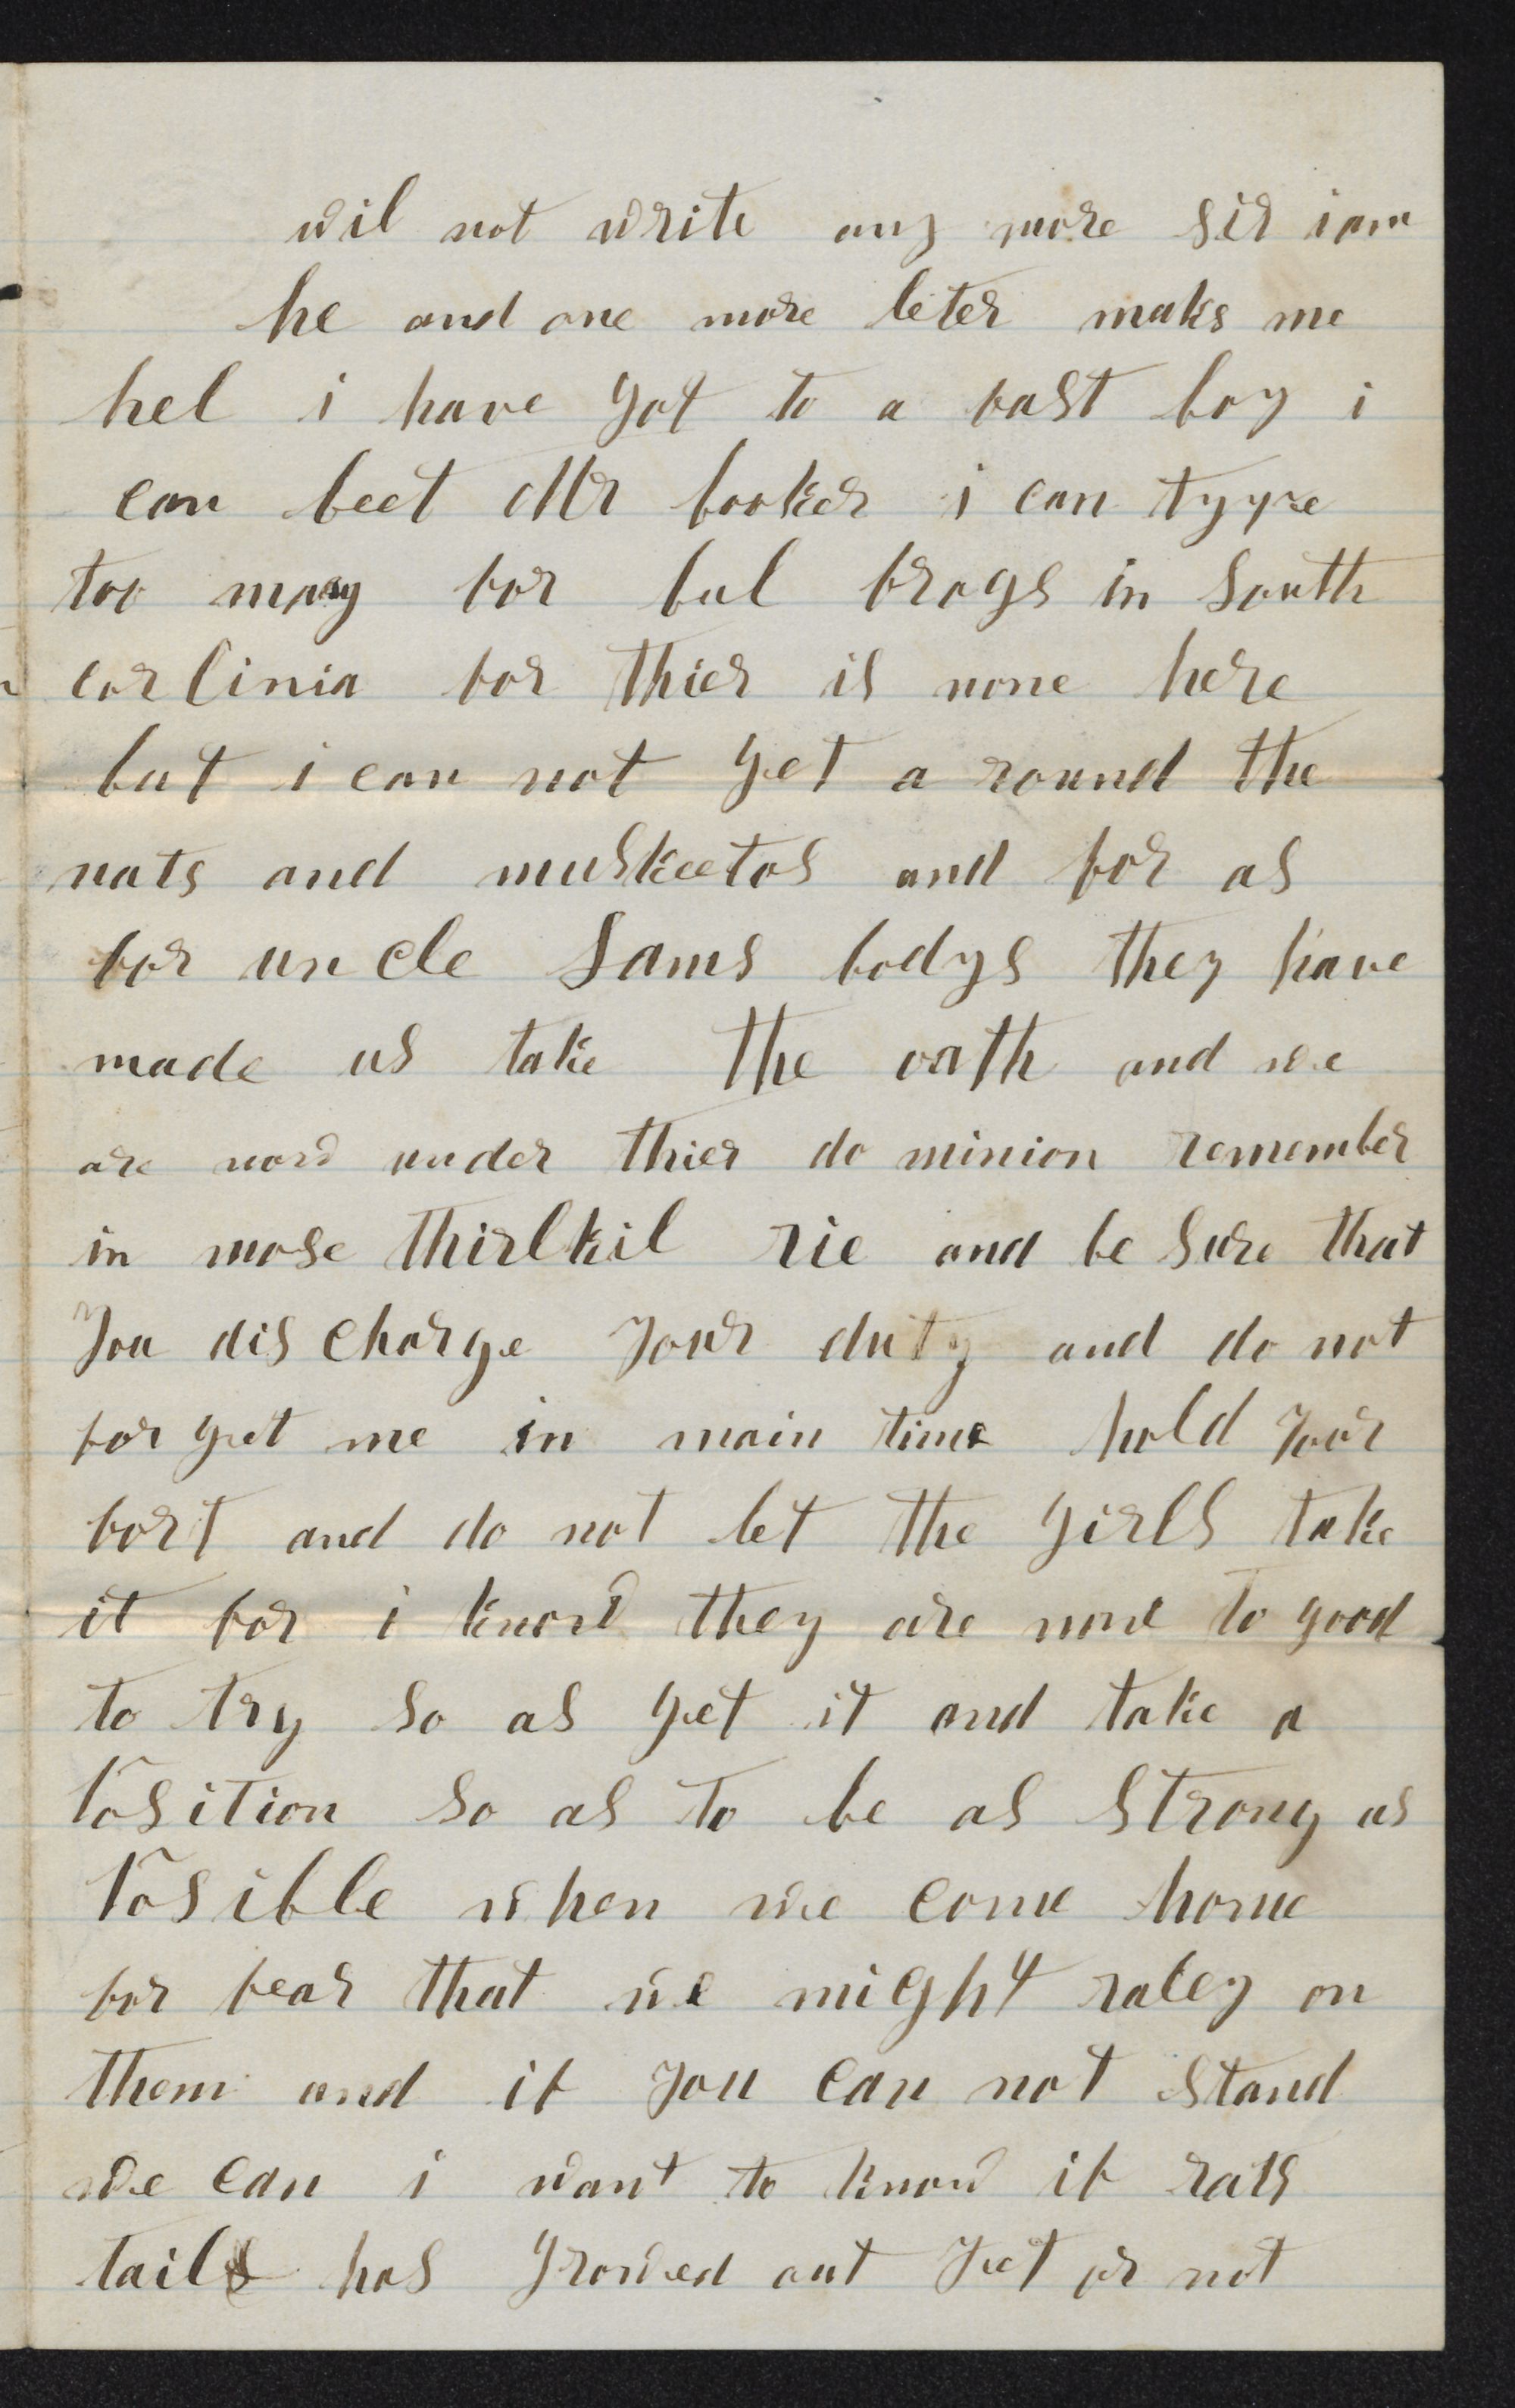 wil not write any more sir i am
he and one more leter maks me
hel i have got to a fast boy i
can beet Mr booker i can
too many for bul frogs in South
carlinia for thier is none here
but i can not get a round the
nats and muskeetos and for as
for un cle Sams bodys they have
made us take the oath and we
are now under thier do minion remember
in mose thirlkil rie and be sure that
you dis charge your duty and do not
for get me in main time hold your
fort and do not let the girls take
it for i know they are none to good
to try so as get it and take a
Position so as to be as strong as
Posible when we come home
for fear that we might raley on
them and if you can not stand
we can i want to know if rats
tail has growed out yet or not